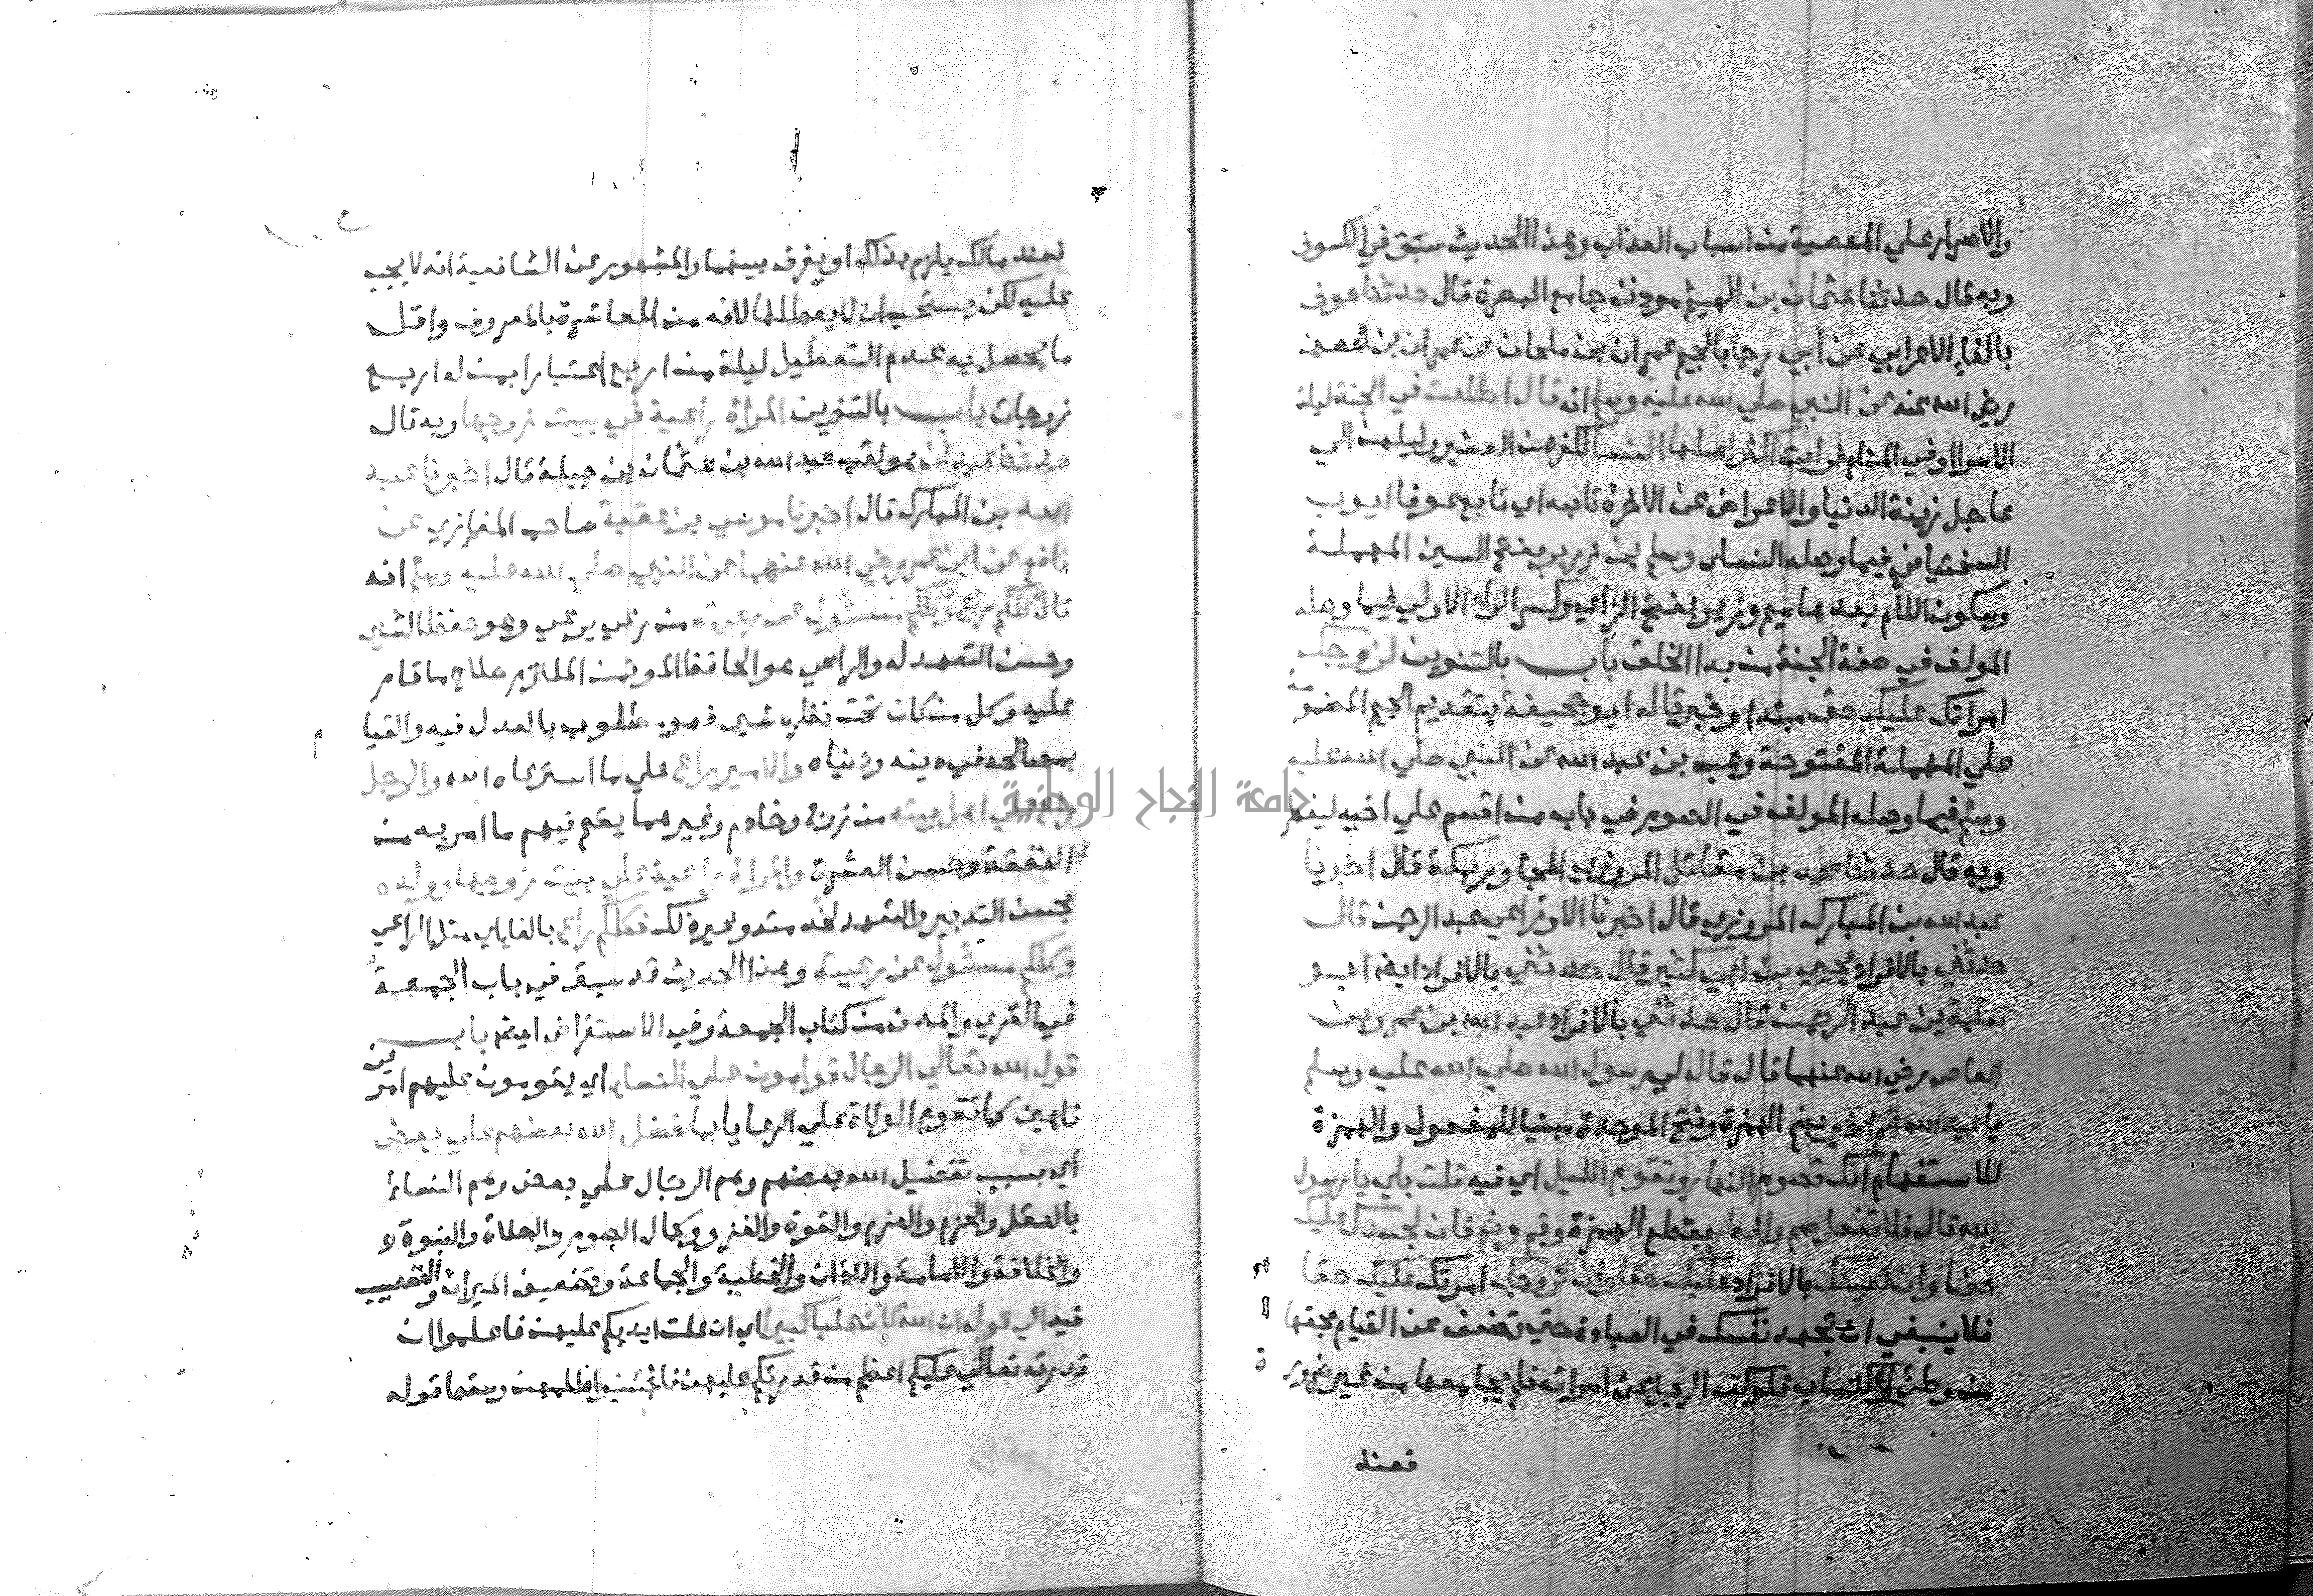 والاصرار علي المعصية من اسباب العذاب وهذا الحديث سبق في الكسوف
وبه قال حدثنا عثمان بن الهيثم موذن جامع البصرة قال حدثنا عوف
بالفاء الاعرابي عن ابي رجا بالجيم عمران بن ملحان عن عمران بن الحصين
رضي الله عنه عن النبي صلي الله عليه وسلم انه قال اطلعت في الجنة ليلة
الاسرا او في المنام فرايت اكثر اهلها النسا لكفرهن العشير وليلهن الي
عاجل زينة الدنيا والاعراض عن الاخرة تابعه اي تابع عوفا ايوب
السختياني فيما وصله النساي وسلم بن زرير بفتح السين المهملة
وسكون اللام بعدها ميم وزرير بفتح الزاي وكسر الراء الاولي فيما وصله
المولف في صفة الجنة من بدا الخلق باب بالتنوين لزوجك
امراتك عليك حق مبتدا وخبر قاله ابو جحيفة بتقديم الجيم المضمومة
علي المهملة المفتوحة وهب بن عبد الله عن النبي صلي الله عليه
وسلم فيما وصله المولف في الصوم في باب من اقسم علي اخيه ليفطر
وبه قال حدثنا محمد بن مقاتل المروزي المجاور بمكة قال اخبرنا
عبد الله بن المبارك المروزي قال اخبرنا الاوزاعي عبد الرحمن قال
حدثني بالافراد يحيي بن ابي كثير قال حدثني بالافراد ايضا ابو
سلمة بن عبد الرحمن قال حدثني بالافراد عبد الله بن عمرو بن
العاص رضي الله عنهما قال قال لي رسول الله صلي الله عليه وسلم
يا عبد الله الم اخبر بضم الهمزة وفتح الموحدة مبنيا للمفعول والهمزة
للاستفهام انك تصوم النهار وتقوم الليل اي فيه قلت بلي يا رسول
الله قال فلا تفعل صم وافطر بقطع الهمزة وقم ونم فان لجسدك عليك
حقا وان لعينك بالافراد عليك حقا وان لزوجك امرتك عليك حقا
فلا ينبغي ان تجهد نفسك في العبادة حتي تضعف عن القيام بحقها
من وطئ واكتساب فلو كف الرجل عن امراته فلم يجامعها من غير ضرورة
فعند
فعند مالك يلزم بذلك او يفرق بينهما والمشهور عن الشافعية انه لا يجب
عليه لكن يستحب ان لا يعطلها لانه من المعاشرة بالمعروف واقل
ما يحصل به عدم التعطيل ليلة من اربع اعتبارا بمن له اربع
زوجات باب بالتنوين المراة راعية في بيت زوجها وبه قال
حدثنا عبدان مولقب عبد الله بن عثمان بن جبلة قال اخبرنا عبد
الله بن المبارك قال اخبرنا موسي بن عقبة صاحب المغازي عن
نافع عن ابن عمر رضي الله عنهما عن النبي صلي الله عليه وسلم انه
قال كلكم راع وكلكم مسئول عن رعيته من رعي يرعي وهو حفظ الشي
وحسن التعهد له والراعي هو الحافظ الموتمن الملتزم صلاح ما قام
عليه وكل من كان تحت نظره شي فهو مطلوب بالعدل فيه والقيام
بمصالحه في دينه ودنياه والامير راع علي ما استرعاه الله والرجل
راع علي اهل بيته من زوجة وخادم وغيرهما يقيم فيهم ما امر به من
النفقة وحسن العشرة والمراة راعية علي بيت زوجها وولده
بحسن التدبير والتعهد لخدمته وغير ذلك فكلكم راع بالفا اي مثل الراعي
وكلكم مسئول عن رعيته وهذا الحديث قد سبق في باب الجمعة
في القري والمدن من كتاب الجمعة وفي الاستقراض ايضا باب
قول الله تعالي الرجال قوامون علي النساء اي يقومون عليهم امرين
ناهين كما تقوم الولاة علي الرعايا بما فضل الله بعضهم علي بعض
اي بسبب تفضيل الله بعضهم وهم الرجال علي بعض وهم النساء
بالعقل والحزم والعزم والقوة والغزو وكمال الصوم والصلاة والنبوة
والخلافة والامامة والاذان والخطبة والجماعة وتضعيف الميراث والتعصيب
فيه الي قوله ان الله كان عليا كبيرا اي ان علت ايديكم عليهن فاعلموا ان
قدرته تعالي عليكم اعظم من قدرتكم عليهن فاجتنبوا ظلمهن وسقط قوله
جامعة النجاح الوطنية